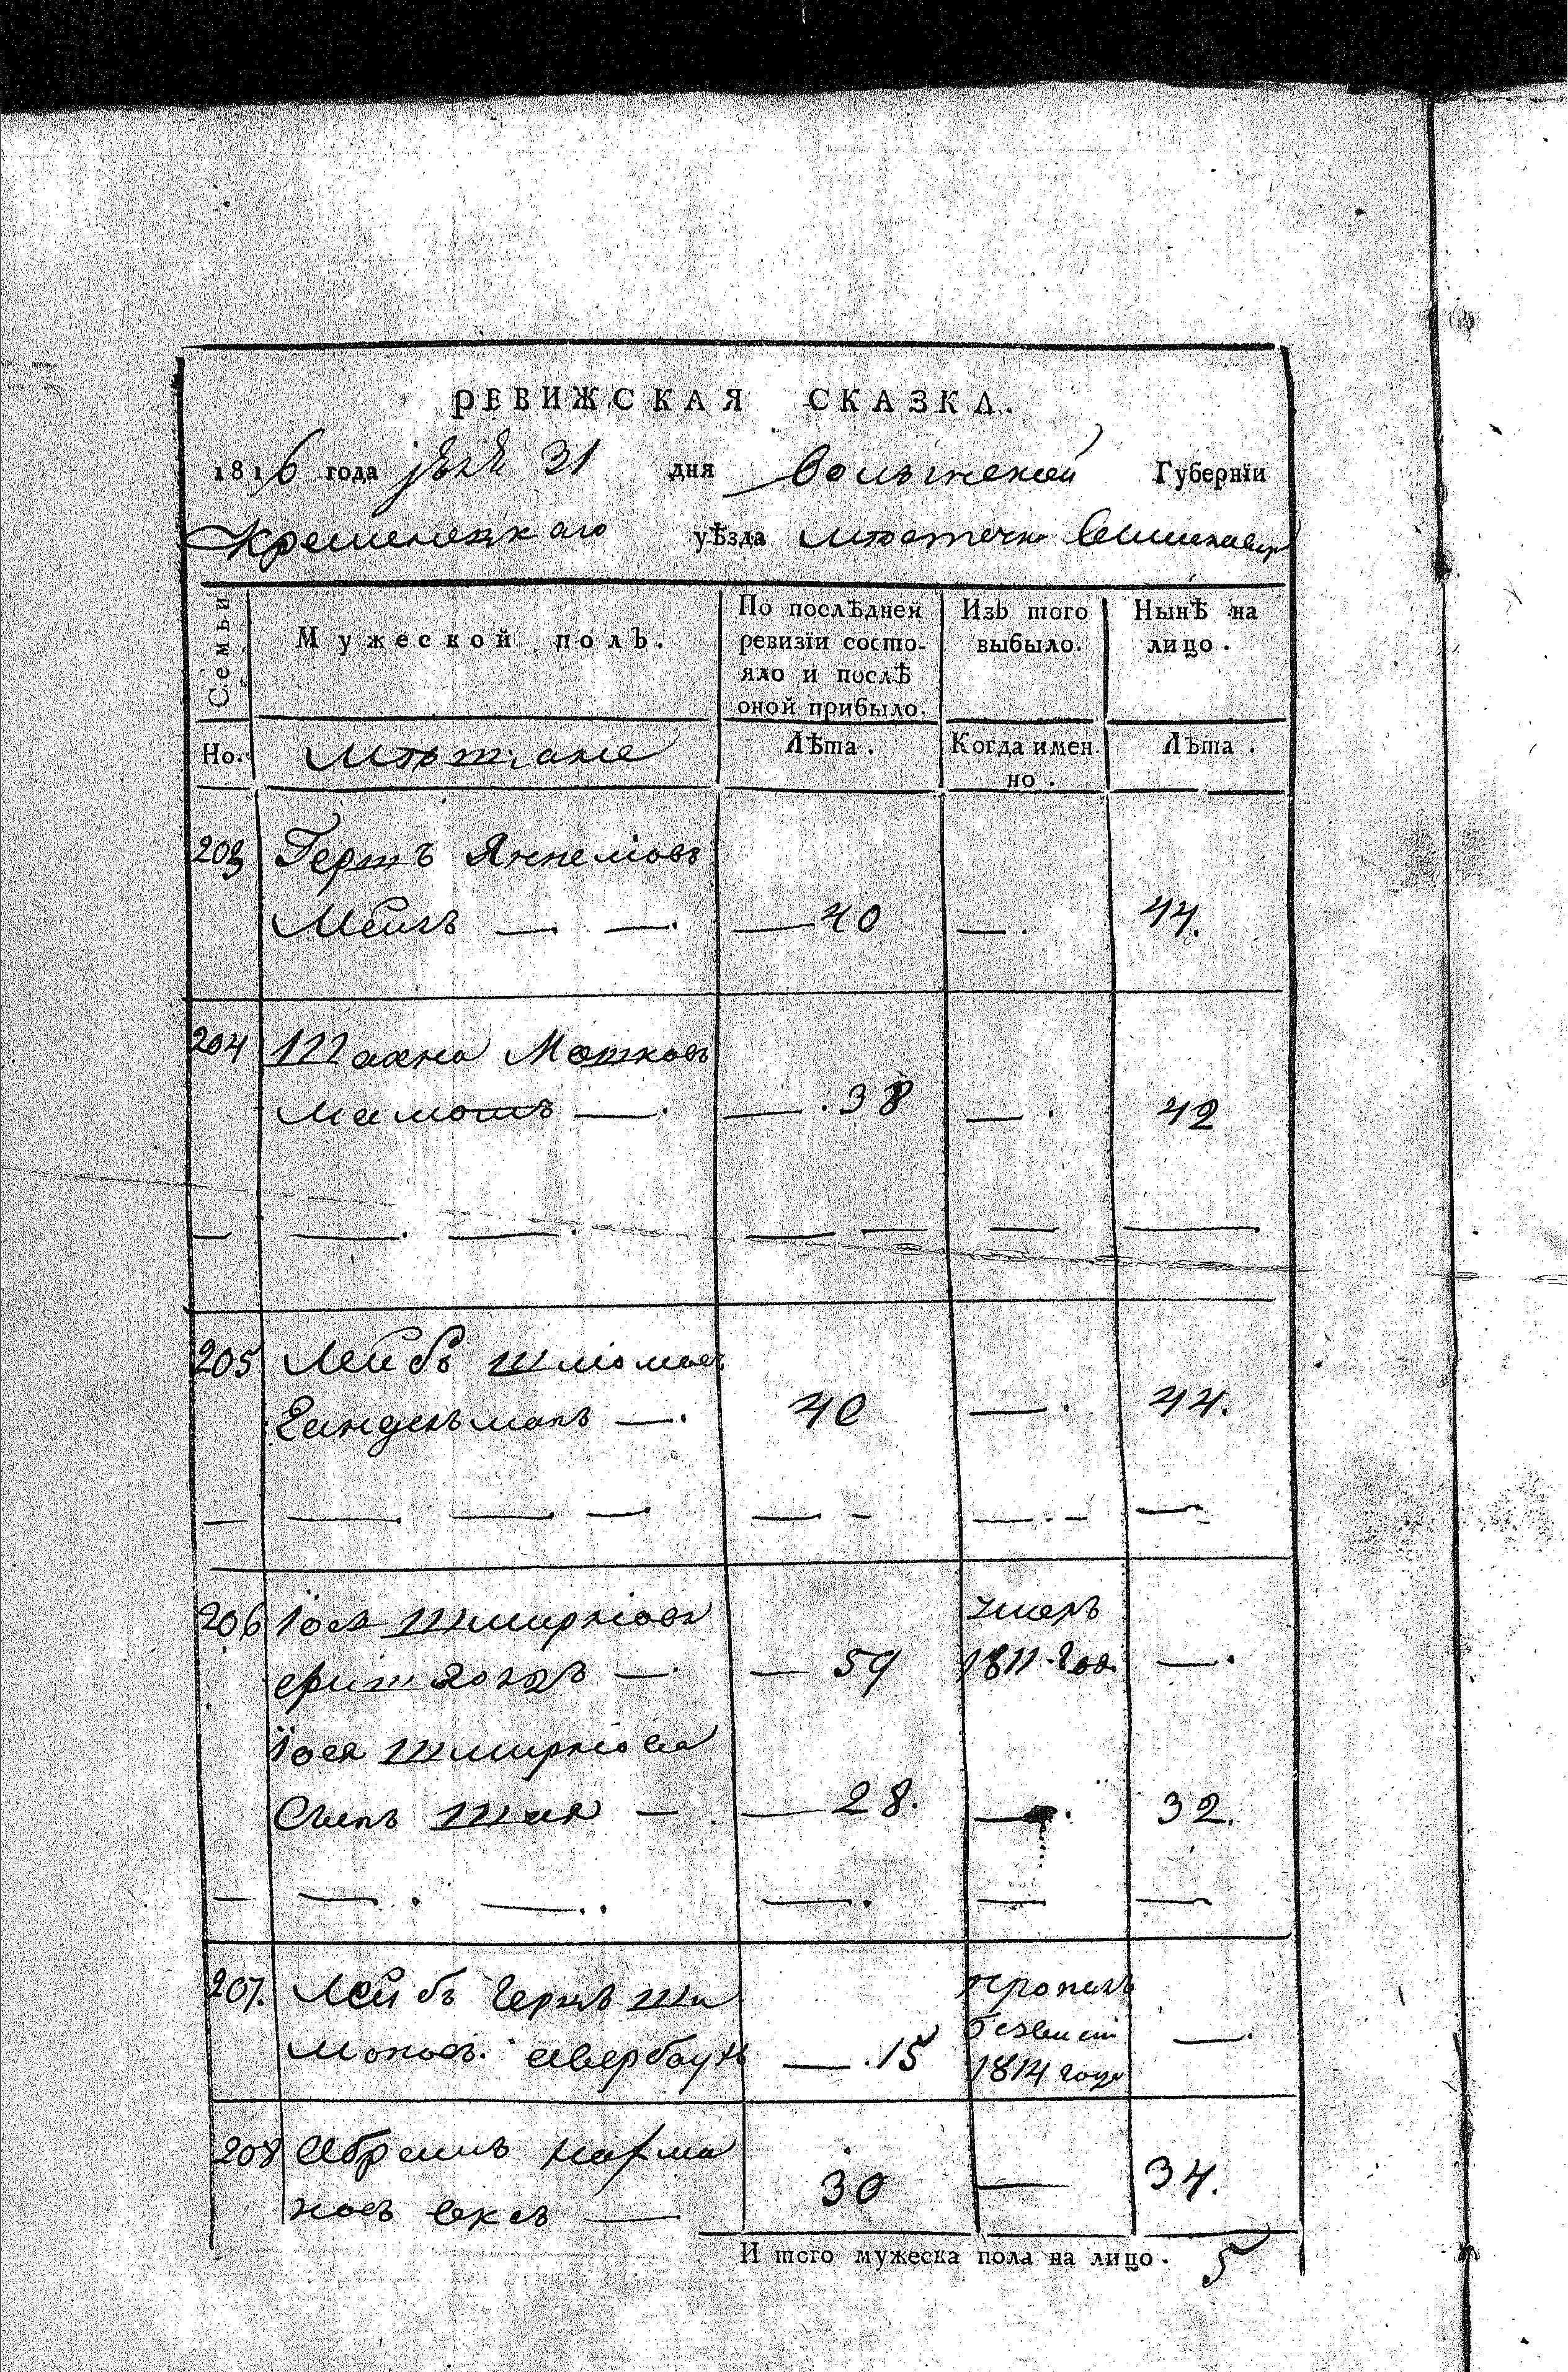 РЕВИЖСКАЯ СКАЗКА.
1816 года 31 дня Волынской Губернїи
Кременецкаго уѣзда мѣстечка
Семьи
Мужеской полъ.
По послѣдней ревизїи состо-
яло и послѣ
оной прибыло.
Изъ того
выбыло.
Нынѣ на
лицо.
Но.
мѣщане
Лѣта.
Когда имен-
но.
Лѣта.
203 Гершъ Янкелїовъ
— — . — 40 — . 44.
204 Шахна Мошковъ
Маматъ — . — . 38 — . 42
— — . — . — — — — .
205 Лейбъ Шлїомовъ
Гандельманъ — . 40 — . 44.
— — . — — — - — . - —
206 Іося Шмирлїовъ умеръ
— . — 59 1811 год — .
Іося Шмирлїова
Сынъ Шая — . — 28. — . 32.
— — . — .. — . — —
207. Лейбъ Герцъ Ши пропалъ
моновъ. Авербаухъ — . 15 безвести — .
1814 года
208 Абрамъ Нахма
новъ — 30 — 34.
И того мужеска пола на лицо. 5